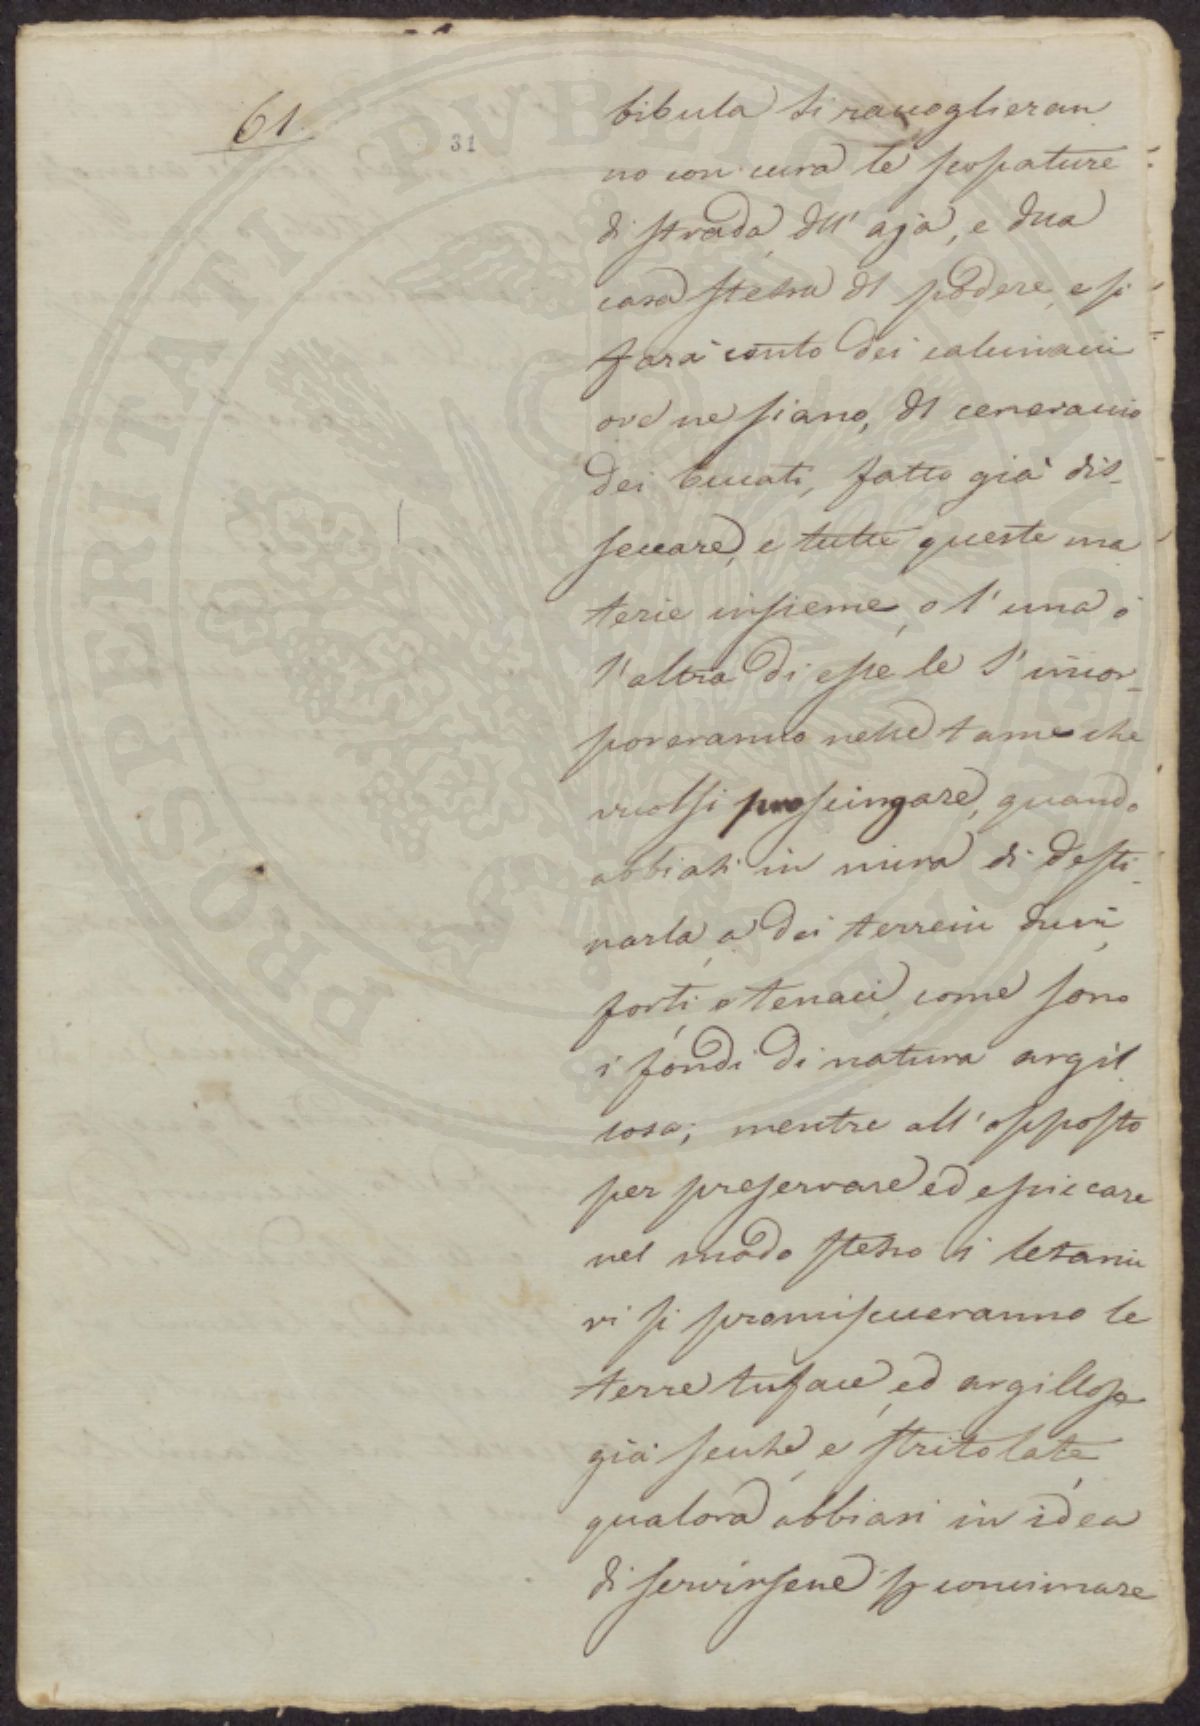 61.
31
bibula si raccoglieran
no con cura le scopature
di strada, dell' aja, e della
casa stessa del podere, e si
farà conto dei calcinacci
ove ne siano, del ceneraccio
dei bucati, fatto già dis-
seccare, e tutte queste ma
terie insieme, o l' una o
l'altra di esse le s' incor-
poreranno nel letame che
vuolsi prosciugare, quando
abbiasi in mira di desti-
narla, a dei terreni duri,
forti, e tenaci, come sono
i fondi di natura argil
losa; mentre all' opposto
per preservare ed essiccare
nel modo stesso i letami
vi si promiscueranno le
terre tufacee, ed argillose
già secche, e stritolate,
qualora abbiasi in idea
di servirsene per concimare
PROSPERITATI PVBLICAE AVGENDAE